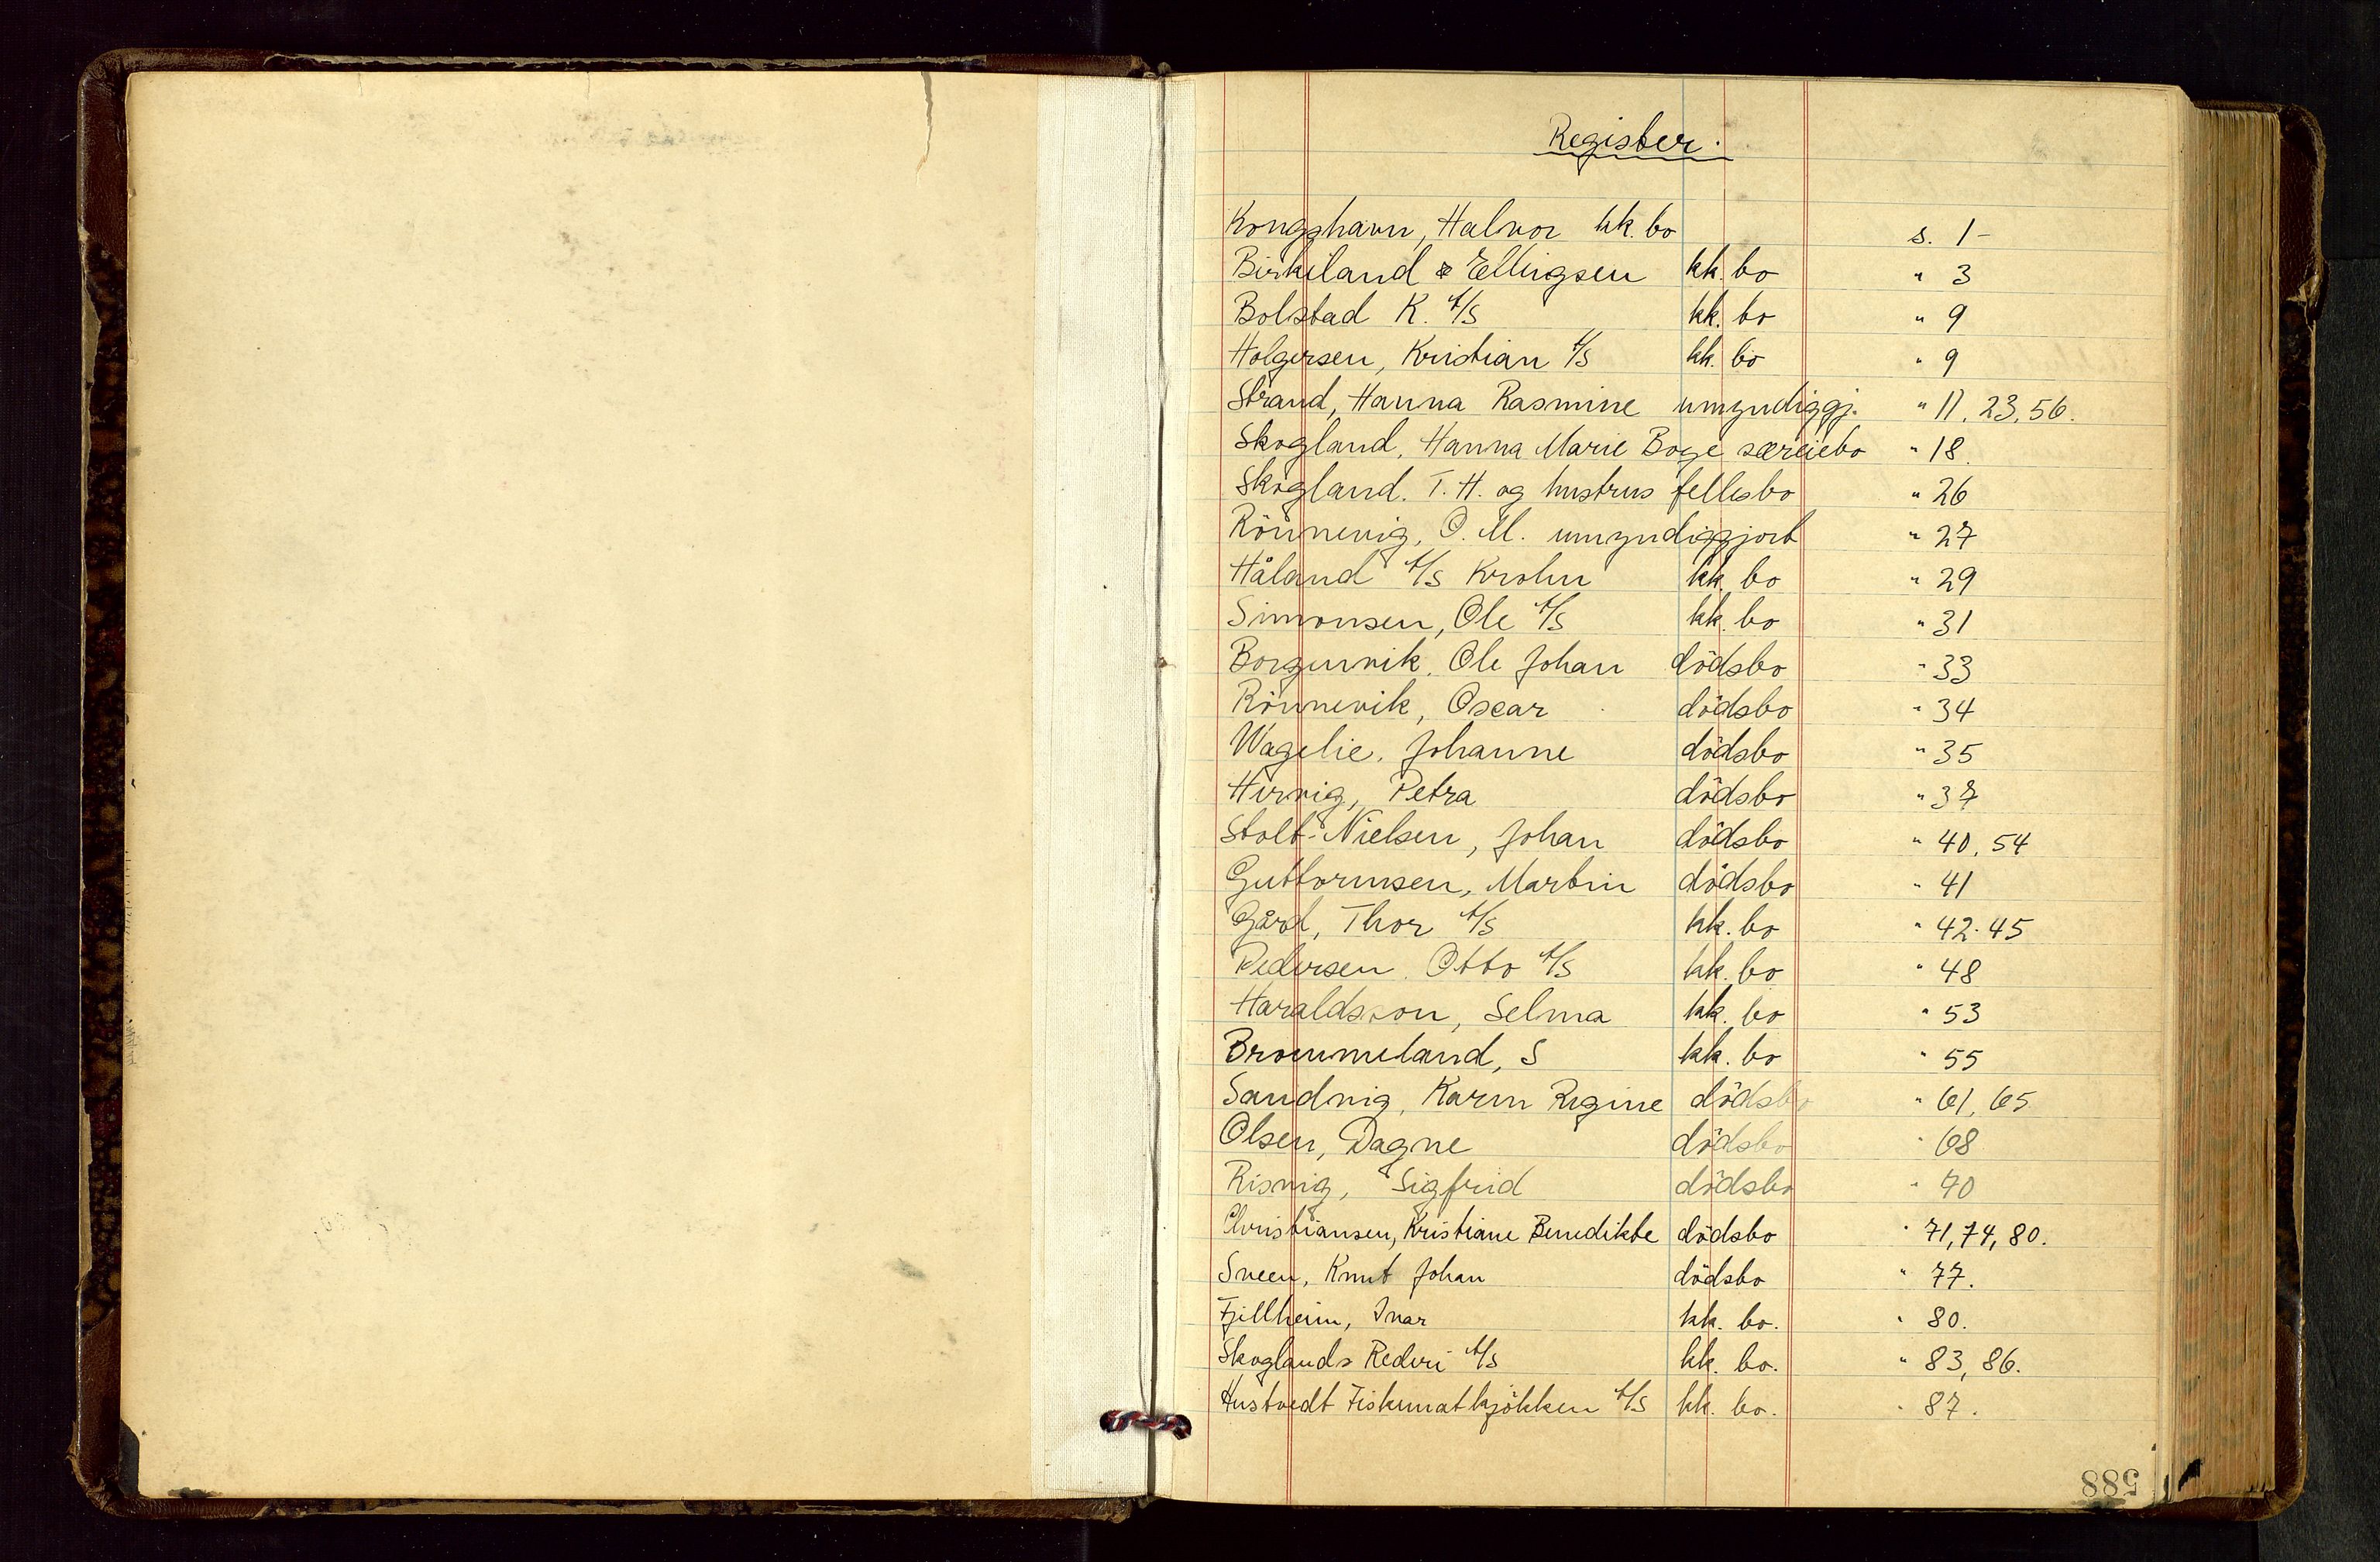 Register.
Kongshavn, Halvor kk. bo s. 1-
Birkeland & Ellingsen kk. bo " 3
Bolstad K. A/S kk. bo " 9
Holgersen, Kristian A/S kk. bo " 9
Strand, Hanna Rasmine umyndiggj. " 11, 23, 56.
Skogland, Hanna Marie Boge særeiebo " 18.
Skogland. T. H. og hustrus fellesbo " 26
Rönnevig, O. M. umyndiggjort " 27
Håland A/S Krohn kk. bo " 29
Simonsen, Ole A/S kk. bo " 31
Borgenvik, Ole Johan dödsbo " 33
Rönnevik, Oscar dödsbo " 34
Wagelie, Johanne dödsbo " 35
Hervig, Petra dödsbo " 37
Stolt-Nielsen, Johan dödsbo " 40, 54
Guttormsen, Martin dödsbo " 41
Gård, Thor A/S kk. bo " 42-45
Pedersen, Otto A/S kk. bo " 48
Haraldsson, Selma kk. bo " 53
Brommeland, S kk. bo " 55
Sandvig, Karen Regine dödsbo " 61, 65
Olsen, Dagne dödsbo " 68
Risvig, Sigfrid dödsbo " 70
Christiansen, Kristiane Benedikte dödsbo " 71, 74, 80.
Sveen, Knut Johan dödsbo " 77.
Fjellheim, Ivar kk. bo. " 80.
Skoglands Rederi A/S kk. bo. " 83, 86.
Hustvedt Fiskematkjökken A/S kk. bo. " 87.
588